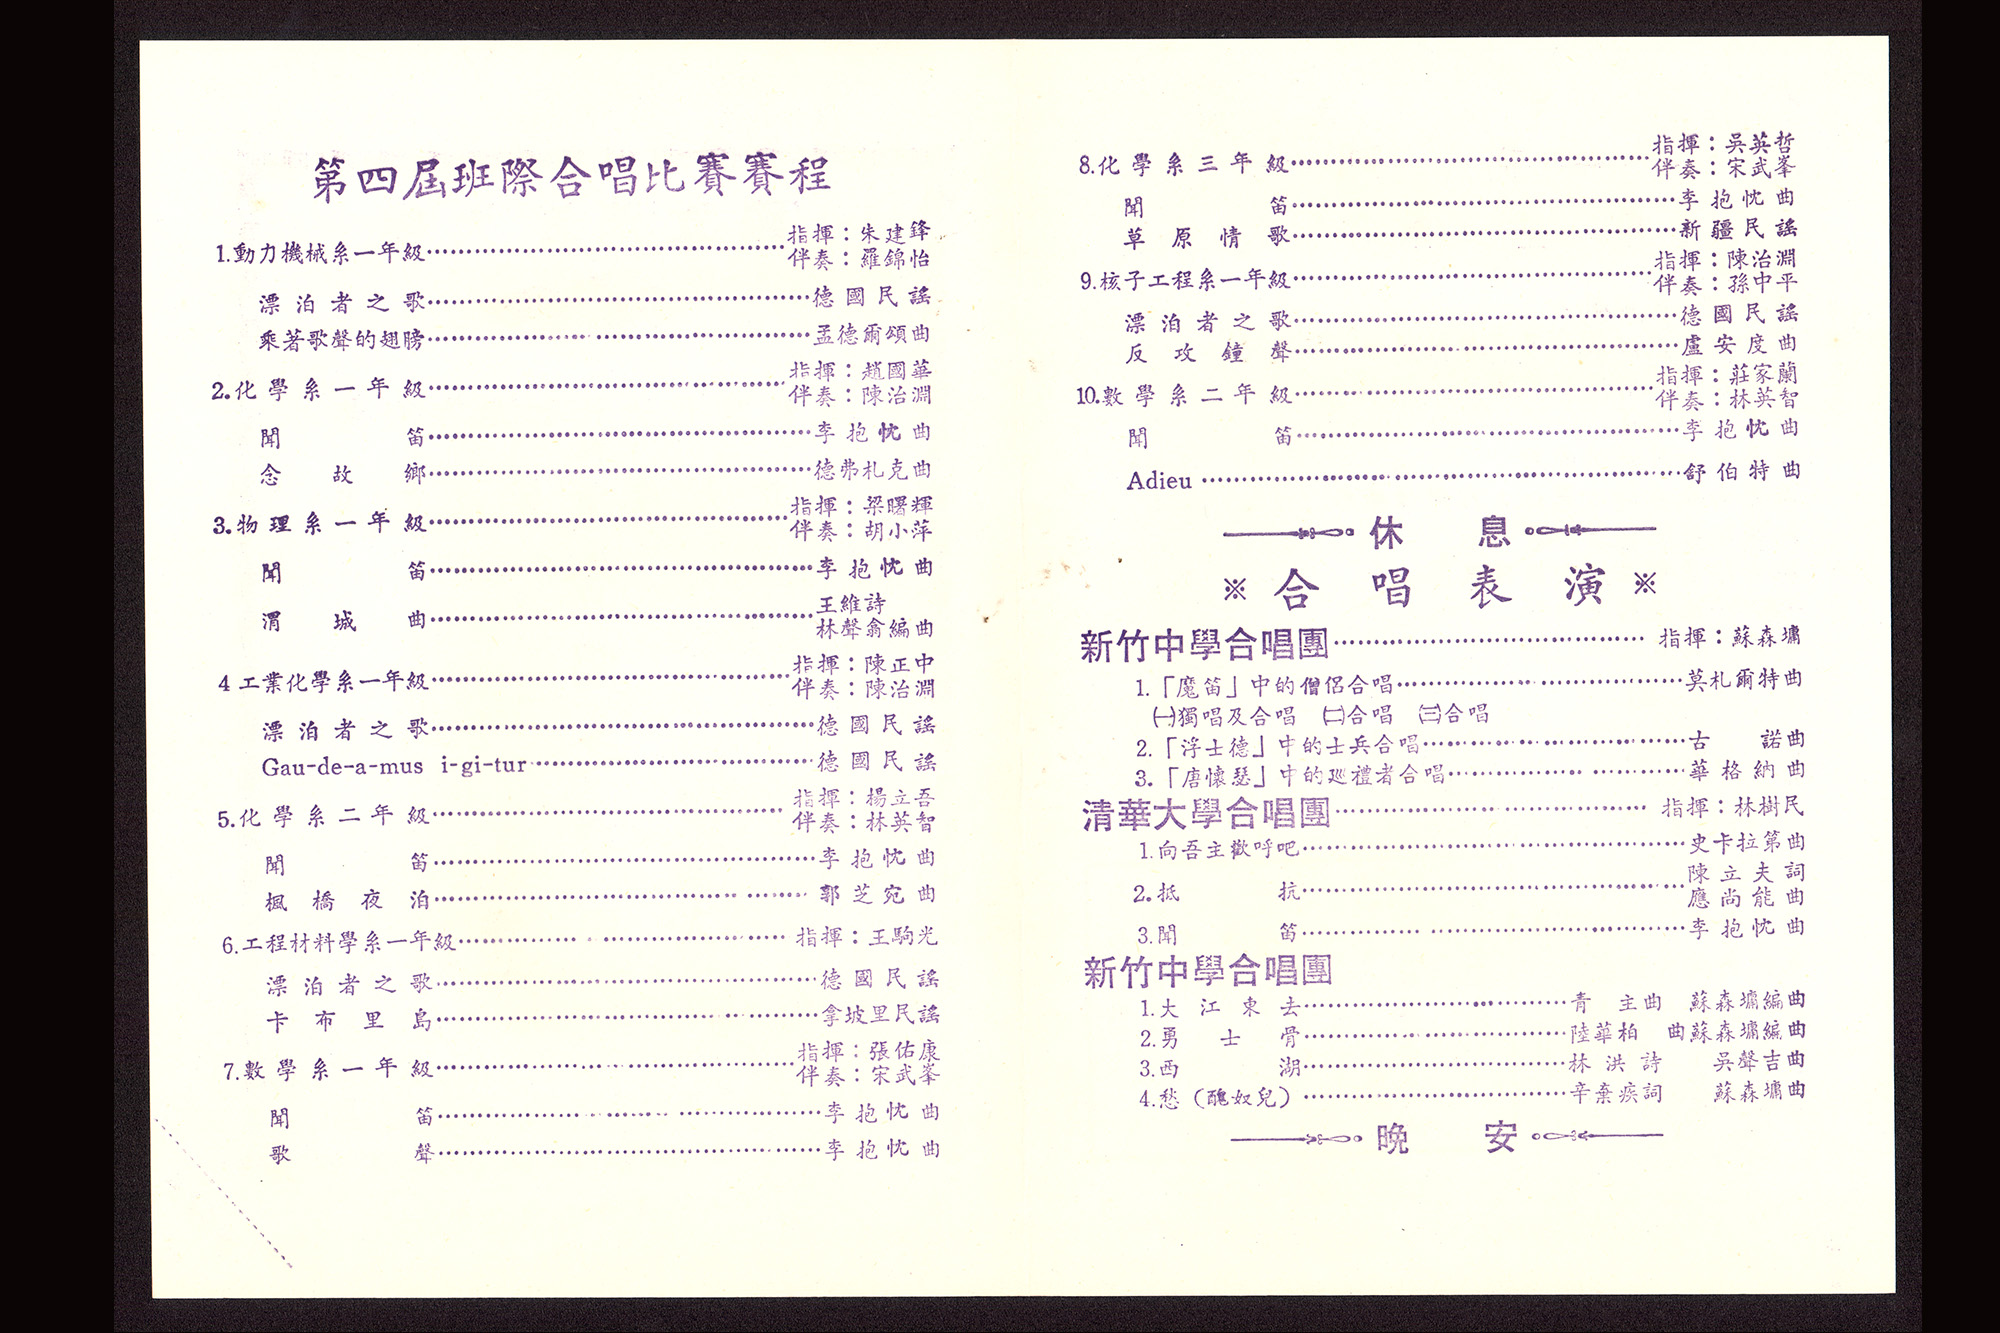 第四屆班際合唱比賽賽程
1.動力機械系一年級⋯⋯指揮：朱建鋒
伴奏：羅錦怡
漂泊者之歌⋯⋯德國民謠
乘著歌聲的翅膀⋯⋯孟德爾頌曲
2.化學系一年級⋯⋯指揮：趙國華
伴奏：陳治淵
聞笛⋯⋯李抱忱曲
念故鄉⋯⋯德弗札克曲
3.物理系一年級⋯⋯指揮：梁曙輝
伴奏：胡小萍
聞笛⋯⋯李抱忱曲
渭城曲⋯⋯王維詩
林聲翕編曲
4工業化學系一年級⋯⋯指揮：陳正中
伴奏：陳治淵
漂泊者之歌⋯⋯德國民謠
Gau-de-a-mus i-gi-tur⋯⋯德國民謠
5.化學系二年級⋯⋯指揮：楊立吾
伴奏：林英智
聞笛⋯⋯李抱忱曲
楓橋夜泊⋯⋯郭芝宛曲
6.工程材料學系一年級⋯⋯指揮：王駒光
漂泊者之歌⋯⋯德國民謠
卡布里島⋯⋯拿坡里民謠
7.數學系一年級⋯⋯指揮：張佑康
伴奏：宋武峯
聞笛⋯⋯李抱忱曲
歌聲⋯⋯李抱忱曲
8.化學系三年級⋯⋯指揮：吳英哲
伴奏：宋武峯
聞笛⋯⋯李抱忱曲
草原情歌⋯⋯新疆民謠
9.核子工程系一年級⋯⋯指揮：陳治淵
伴奏：孫中平
漂泊者之歌⋯⋯德國民謠
反攻鐘聲⋯⋯盧安度曲
10.數學系二年級⋯⋯指揮：莊家蘭
伴奏：林英智
聞笛⋯⋯李抱忱曲
Adieu⋯⋯舒伯特曲
休息
※合唱表演※
新竹中學合唱團⋯⋯指揮：蘇森墉
1.「魔笛」中的僧侶合唱⋯⋯莫札爾特曲
㈠獨唱及合唱 ㈡合唱 ㈢合唱
2.「浮士德」中的士兵合唱⋯⋯古諾曲
3.「唐懷瑟」中的巡禮者合唱⋯⋯華格納曲
清華大學合唱團⋯⋯指揮：林樹民
1.向吾主歡呼吧⋯⋯史卡拉第曲
2.抵抗⋯⋯陳立夫詞
應尚能曲
3.聞笛⋯⋯李抱忱曲
新竹中學合唱團
1.大江東去⋯⋯青主曲 蘇森墉編曲
2.勇士骨⋯⋯陸華柏曲蘇森墉編曲
3.西湖⋯⋯林洪詩 吳聲吉曲
4.愁（醜奴兒）⋯⋯辛棄疾詞 蘇森墉曲
晚安